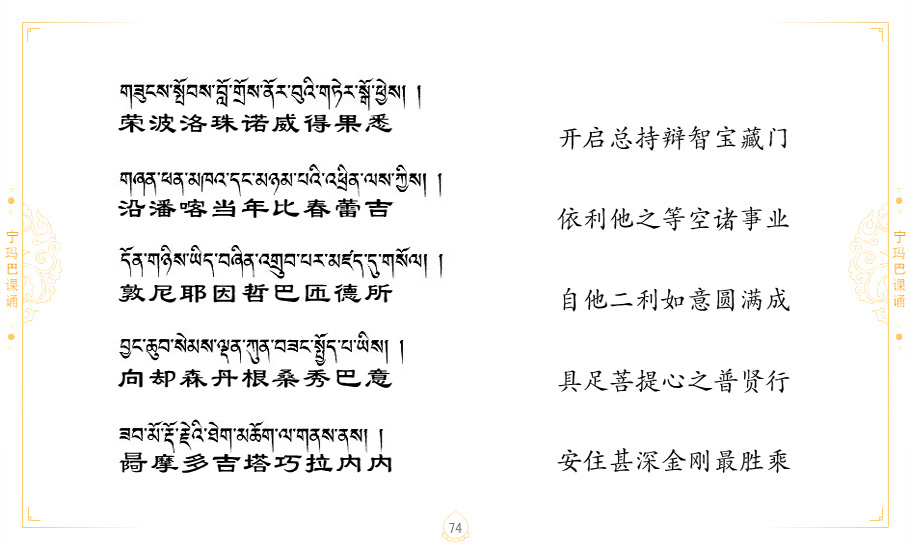 གཟུངས་སྤོབས་བློ་གྲོས་ནོར་བུའི་གཏེར་སྒོ་ཕྱེས། །
荣波洛珠诺威得果悉
开启总持辩智宝藏门
གཞན་ཕན་མཁའ་དང་མཉམ་པའི་འཕྲིན་ལས་ཀྱིས། །
沿潘喀当年比春蕾吉
依利他之等空诸事业
དོན་གཉིས་ཡིད་བཞིན་འགྲུབ་པར་མཛད་དུ་གསོལ། །
敦尼耶因哲巴匝德所
自他二利如意圆满成
བྱང་ཆུབ་སེམས་ལྡན་ཀུན་བཟང་སྤྱོད་པ་ཡིས། །
向却森丹根桑秀巴意
具足菩提心之普贤行
ཟབ་མོ་རྡོ་རྗེའི་ཐེག་མཆོག་ལ་གནས་ནས། །
摩多吉塔巧拉内内
安住甚深金刚最胜乘
宁玛巴课诵
宁玛巴课诵
74